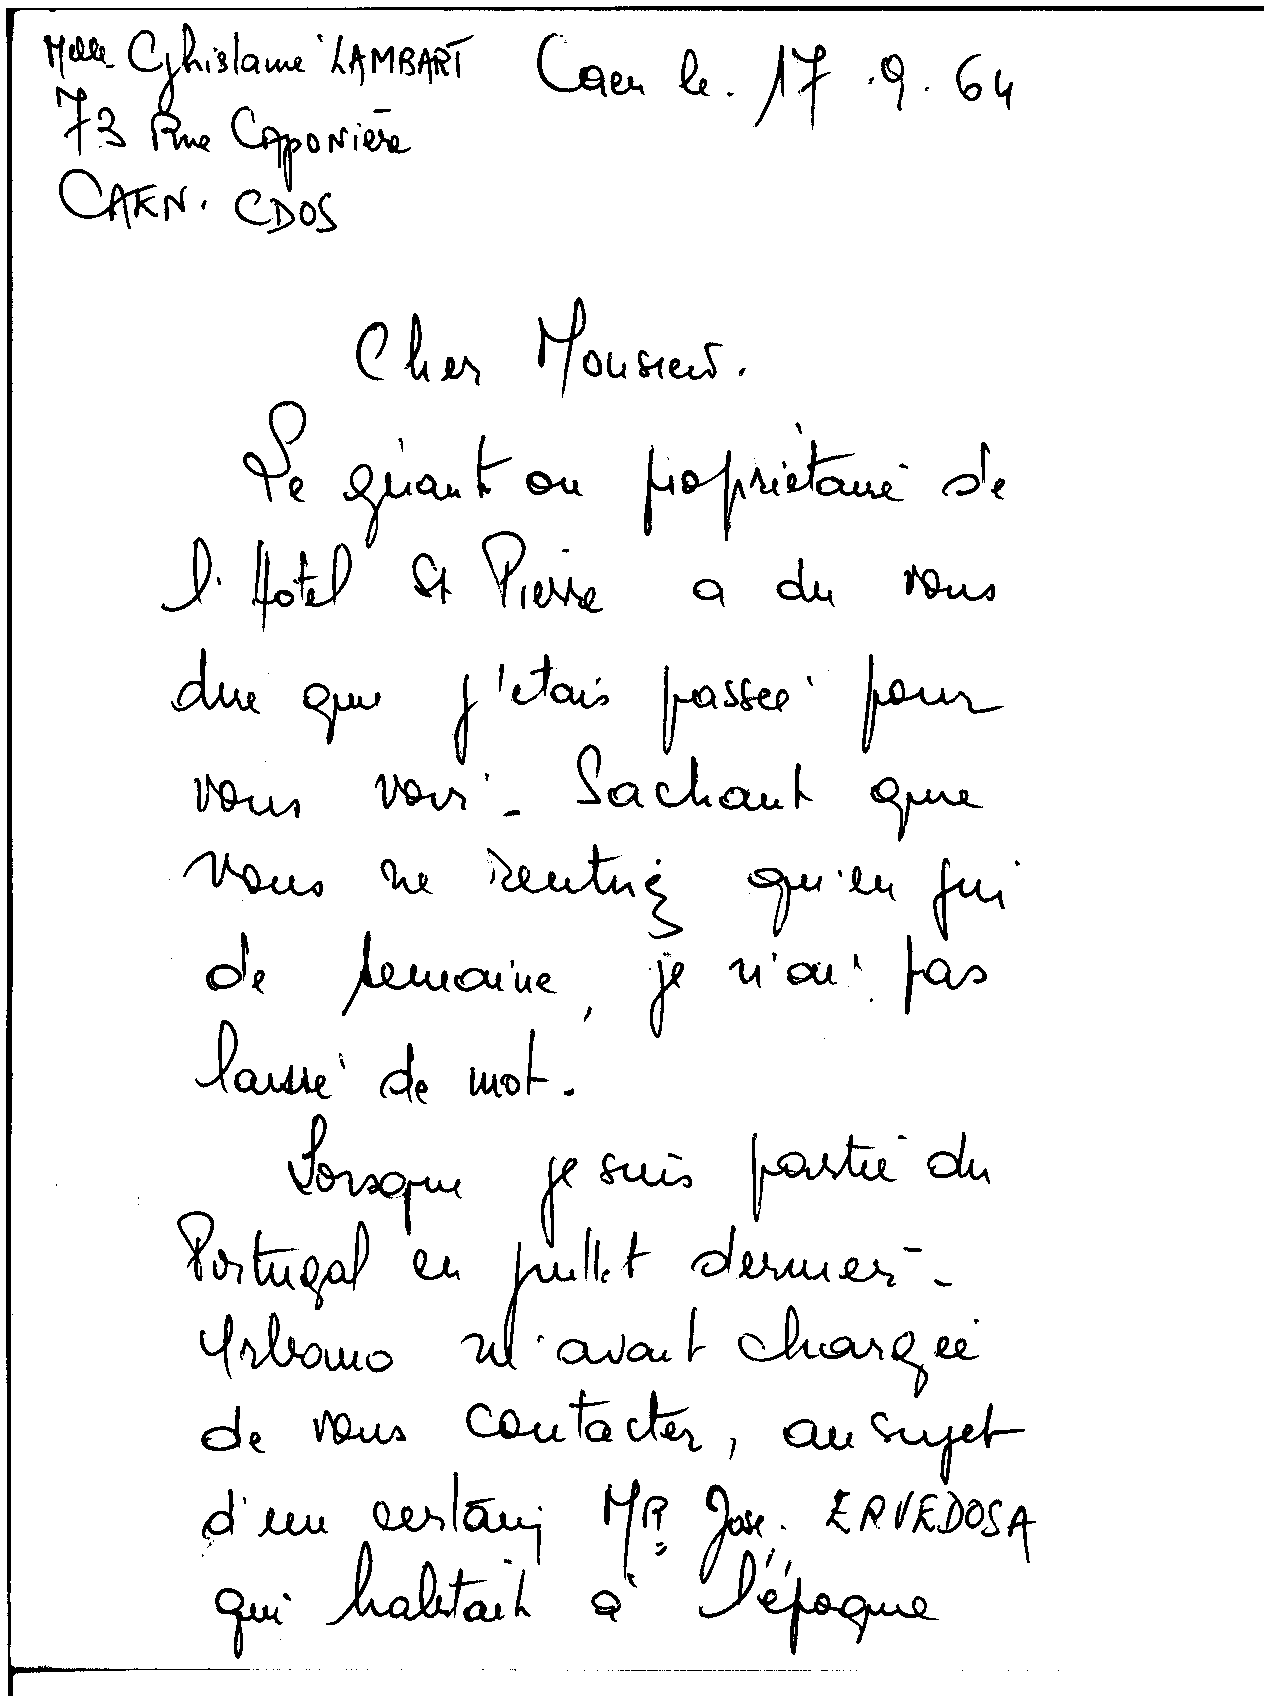 Melle Ghislaine LAMBART Caen le. 17.9.64
73 Rue Caponière
CAEN. CDOS
Cher Monsieur.
Le gérant ou propriétaire de
l'Hotel St Pierre a du vous
dire que j'étais passée pour
vous voir - Sachant que
vous ne rentriez qu'en fin
de semaine, je n'ai pas
laissé de mot.
Lorsque je suis partie du
Portugal en juillet dernier -
Urbano m'avait chargée
de vous contacter, au sujet
d'un certain MR José ERVEDOSA
qui habitait à l'époque